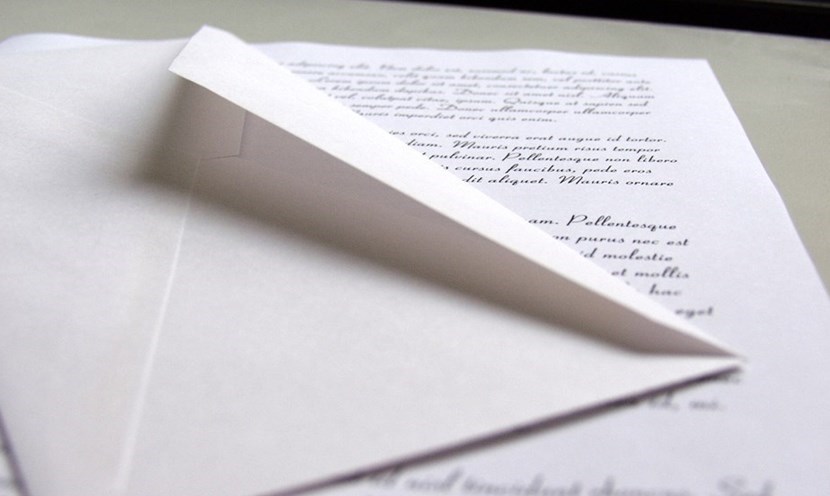 adipiscing elit. Nam dolor
vel quam bibendum sem, vel porttitor ante
dolor sit amet, consectetuer adipiscing elit.
bibendum dapibus. Donec sit amet nisl. Aliquam
vel, volutpat vitae, ipsum. Quisque at sapien sed
semper pede. Donec ullamcorper ullamcorper
imperdiet orci quis enim.
ies orci, sed viverra erat augue id tortor.
diam. Mauris pretium risus tempor
pulvinar. Pellentesque non libero
cursus faucibus, pede eros
dit aliquet. Mauris ornare
am. Pellentesque
on purus nec est
id molestie
et mollis
hac
eget
mi.
tincidunt